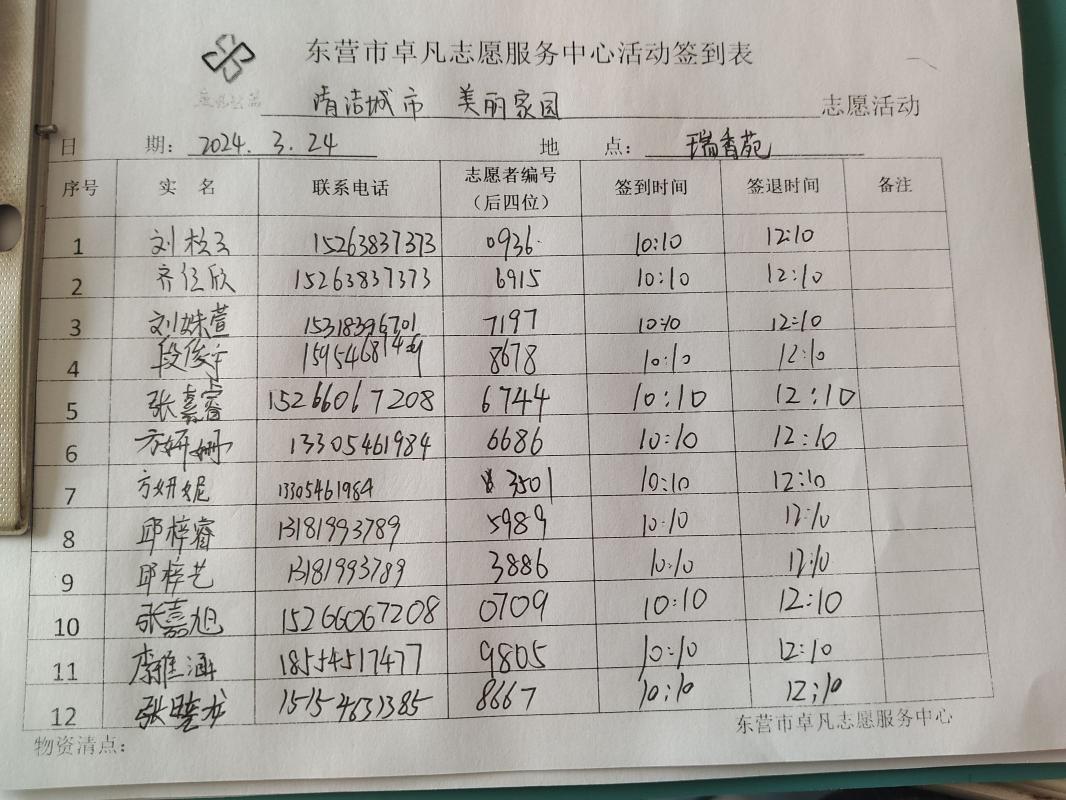 东营市卓凡志愿服务中心活动签到表
清洁城市 美丽家园 志愿活动
日 期: 2024. 3. 24 地 点: 瑞香苑
序号 实 名 联系电话 志愿者编号（后四位） 签到时间 签退时间 备注
1 刘 15263837373 0936 10:10 12:10
2 齐 欣 15263837373 6915 10:10 12:10
3 刘姝萱 15318396701 7197 10:10 12:10
4 段俊宇 8678 10:10 12:10
5 张嘉睿 15266067208 6744 10:10 12:10
6 方妍姗 13305461984 6686 10:10 12:10
7 方妍妮 13305461984 3501 10:10 12:10
8 邱梓睿 13181993789 5989 10:10 12:10
9 邱梓艺 13181993789 3886 10:10 12:10
10 张嘉旭 15266067208 0709 10:10 12:10
11 李雅涵 18554517477 9805 10:10 12:10
12 张 龙 8667 10:10 12:10
东营市卓凡志愿服务中心
物资清点: